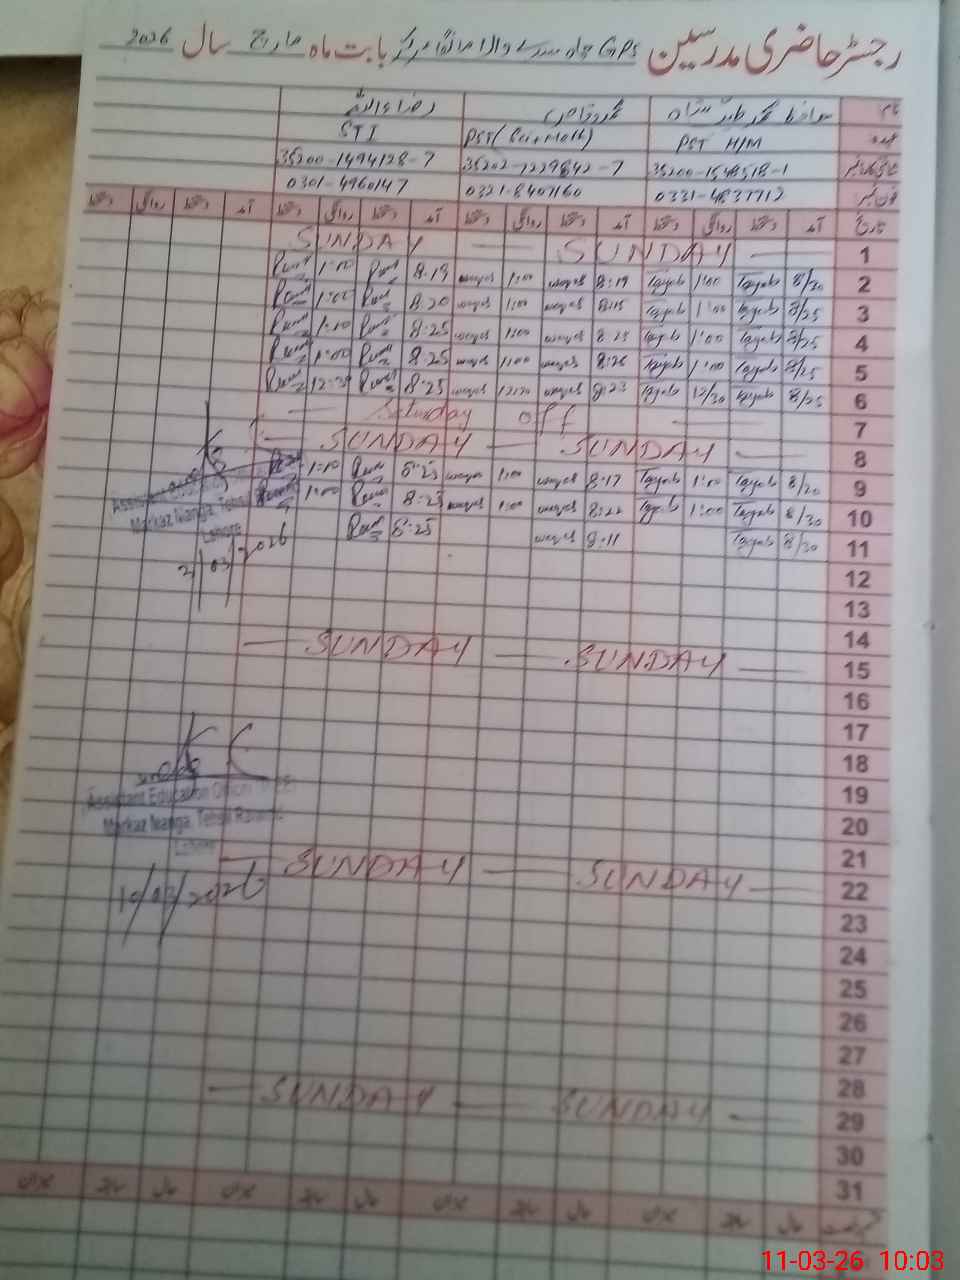 رجسٹر حاضری مدرسین GPS بابت ماہ مارچ سال 2026
نام
PST H/M PST (Sci-Math) STI
35200-1548518-1 35202-7229842-7 35200-1494128-7
فون نمبر 0331-4837712 0321-8407160 0301-4960147
تاریخ آمد دستخط روانگی دستخط آمد دستخط روانگی دستخط آمد دستخط روانگی دستخط آمد دستخط روانگی دستخط
1 SUNDAY SUNDAY
2 8/20 Tayab 1:00 Tayab 8:19 waqas 1:00 waqas 8:19 1:00
3 8/25 Tayab 1:00 Tayab 8:15 waqas 1:00 waqas 8:20 1:00
4 8/25 Tayab 1:00 Tayab 8:25 waqas 1:00 waqas 8:25 1:00
5 8/25 Tayab 1:00 Tayab 8:26 waqas 1:00 waqas 8:25 1:00
6 8/25 Tayab 12/30 Tayab 8:23 waqas 12:30 waqas 8:25
7 Saturday off
8 SUNDAY SUNDAY
9 8/20 Tayab 1:00 Tayab 8:17 waqas 1:00 waqas 8:25 1:00
10 8/30 Tayab 1:00 Tayab 8:22 waqas 1:00 waqas 8:25 1:00
11 8/30 Tayab 8:11 waqas 8:25
Assistant Education Officer
Markaz Nanga, Tehsil
Lahore
2/03/2026
12
13
14
15 SUNDAY SUNDAY
16
17
18
19
Assistant Education Officer
20
Markaz Nanga, Tehsil Raiwind
Lahore
21
22 SUNDAY SUNDAY
10/03/2026
23
24
25
26
27
28
29 SUNDAY SUNDAY
30
31
حال سابقہ میزان حال سابقہ میزان حال سابقہ میزان حال سابقہ میزان
11-03-26 10:03